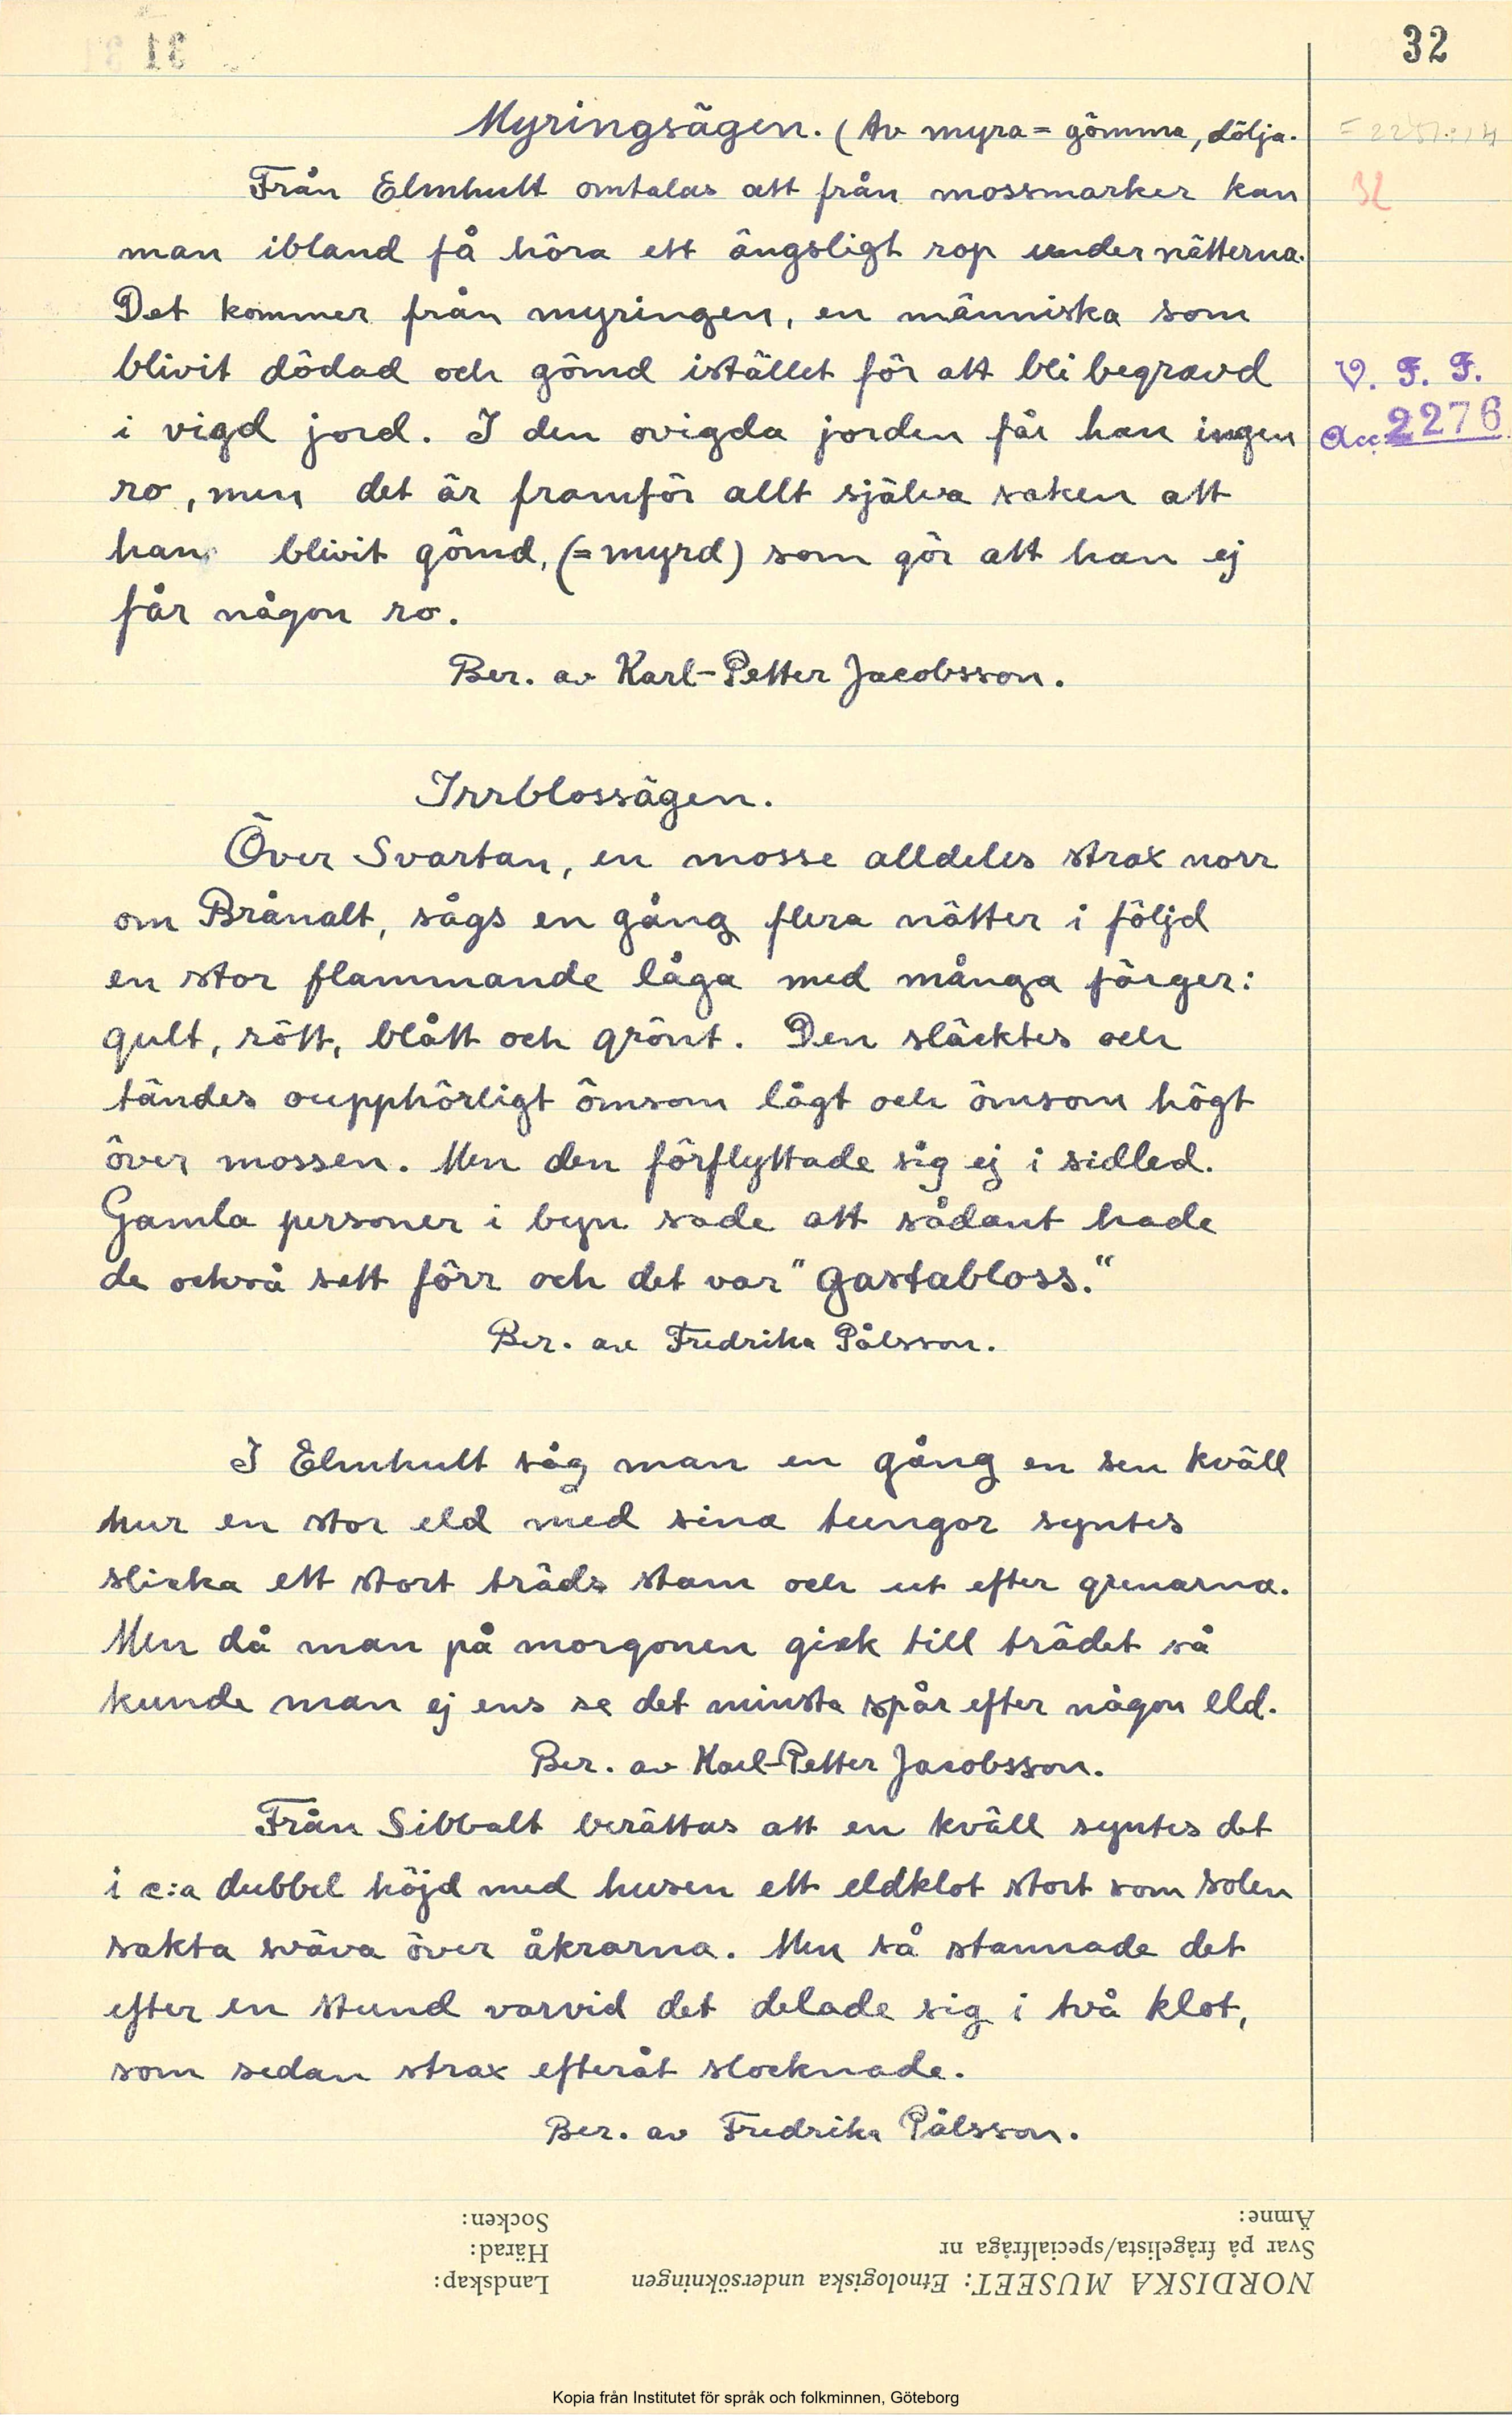 32
Myringsägen. (Av myra = gömma, dölja.
Från Elmhult omtalas att från mossmarker kan
man ibland få höra ett ängsligt rop under nätterna.
Det kommer från myringen, en människa som
blivit dödad och gömd istället för att bli begravd
i vigd jord. I den ovigda jorden får han ingen
ro, men det är framför allt själva saken att
han blivit gömd, (=myrd) som gör att han ej
får någon ro.
Ber. av Karl-Petter Jacobsson.
32
V. F. F.
Acc. 2276
Irrblossägen.
Över Svartan, en mosse alldeles strax norr
om Brånalt, sågs en gång flera nätter i följd
en stor flammande låga med många färger:
gult, rött, blått och grönt. Den släcktes och
tändes oupphörligt ömsom lågt och ömsom högt
över mossen. Men den förflyttade sig ej i sidled.
Gamla personer i byn sade att sådant hade
de också sett förr och det var "gastabloss."
Ber. av Fredrika Pålsson.
I Elmhult såg man en gång en sen kväll
hur en stor eld med sina tungor syntes
slicka ett stort träds stam och ut efter grenarna.
Men då man på morgonen gick till trädet så
kunde man ej ens se det minsta spår efter någon eld.
Ber. av Karl-Petter Jacobsson.
Från Sibbalt berättas att en kväll syntes det
i c:a dubbel höjd med husen ett eldklot stort som solen
sakta sväva över åkrarna. Men så stannade det
efter en stund varvid det delade sig i två klot,
som sedan strax efteråt slocknade.
Ber. av Fredrika Pålsson.
NORDISKA MUSEET: Etnologiska undersökningen
Svar på frågelista/specialfråga nr
Ämne:
Landskap:
Härad:
Socken:
Kopia från Institutet för språk och folkminnen, Göteborg